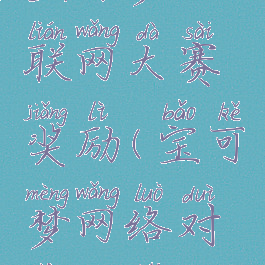 lián wǎng dà sài
联网大赛
jiǎng lì ( bǎo kě
奖励(宝可
mèng wǎng luò duì
梦网络对